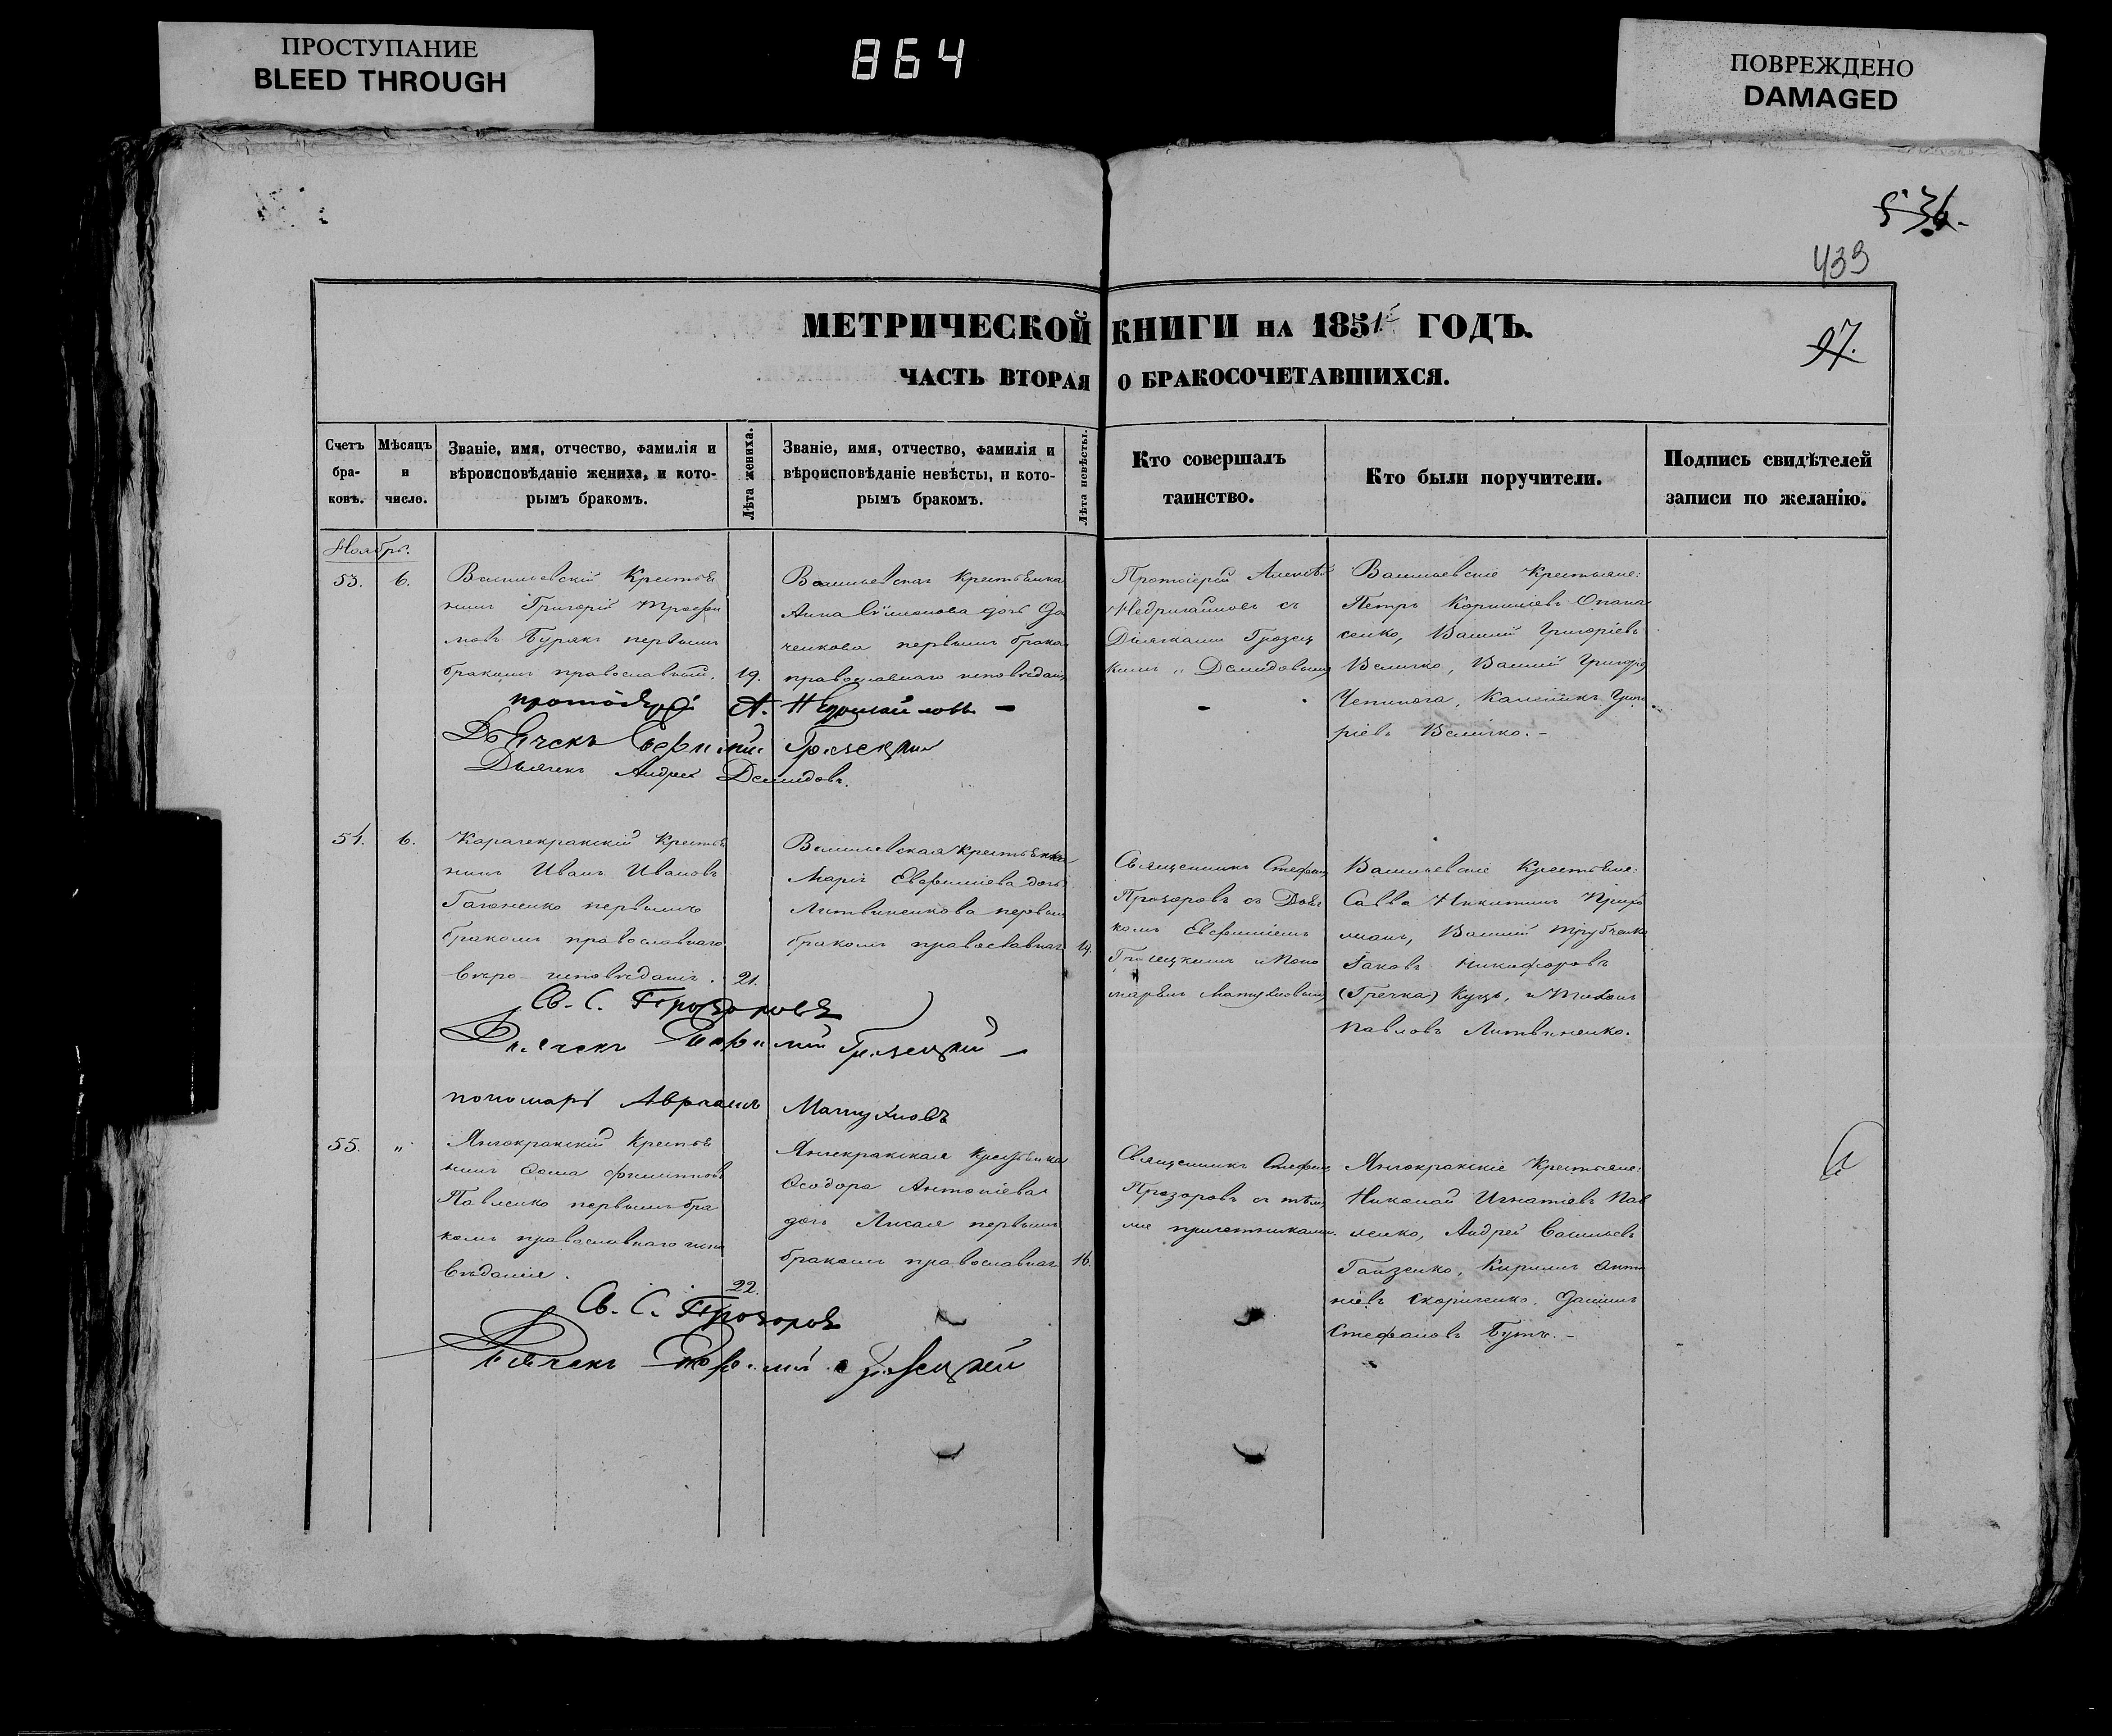 ПРОСТУПАНИЕ
BLEED THROUGH
864
ПОВРЕЖДЕНО
DAMAGED
536.
439
97.
МЕТРИЧЕСКОЙ КНИГИ НА 1851 ГОДЪ.
ЧАСТЬ ВТОРАЯ О БРАКОСОЧЕТАВШИХСЯ.
Счетъ браковъ.
Мѣсяцъ и число.
Званіе, имя, отчество, фамилія и
вѣроисповѣданіе жениха, и кото-
рымъ бракомъ.
Лѣта жениха.
Званіе, имя, отчество, фамилія и
вѣроисповѣданіе невѣсты, и кото-
рымъ бракомъ.
Лѣта невѣсты.
Кто совершалъ
таинство.
Кто были поручители.
Подпись свидѣтелей
записи по желанію.
Ноябрь.
53. 6.
Васильевскій Крестья
нинъ Григорій Трофи
мовъ Бурякъ первымъ
бракомъ православный. 19.
Васильевская Крестьянка
Анна дочь
ченкова первымъ бракомъ
православнаго исповеданія
Протоіерей Алексѣй
Недригайловъ съ
Дьячками Грозец
кимъ и Демидовымъ
Васильевскіе Крестьяне:
Петръ Корнилiевъ Опана
сенко, Василій Григоріевъ
Величко, Василій Григорiевъ
Чепинога, Григо
ріевъ Величко.
протоіерей А. Недригайловъ
Дьячекъ Евфимій Грозецкій
Дьячекъ Андрей Демидовъ.
54. 6.
Карачекракскій Крестья
нинъ Иванъ Ивановъ
первымъ
бракомъ православнаго
вѣро-исповѣданія. 21.
Васильевская Крестьянка
Марія Евфиміева дочь
Литвиненкова первымъ
бракомъ православнаго 19.
Священникъ Стефанъ
Прозоровъ съ Дьяч
комъ Евфиміемъ
Грозецкимъ и Поно
маремъ Матухновымъ
Васильевскіе Крестьяне:
Савва Никитинъ Прихо
Василій Трубченко
Яковъ Никифоровъ
(Гречка) Куць, и
Павловъ Литвиненко.
Св. С. Прозоровъ
Дьячекъ Евфимій Грозецкій
пономарь Авраамъ Матухновъ
55. "
Янчекракскій Крестья
нинъ Фома Филиповъ
Павленко первымъ бра
комъ православнаго испо
вѣданія. 22.
Янчекракская Крестьянка
Ѳеодора Антоніева
дочь Лисая первымъ
бракомъ православнаго 16.
Священникъ Стефанъ
Прозоровъ съ тѣми
же причетниками.
Янчекракскіе Крестьяне:
Николай Игнатіевъ Пав
ленко, Андрей Васильевъ
Кириллъ Анто
ніевъ Скориченко, Даніилъ
Стефановъ Бутъ.
Св. С. Прозоровъ
Дьячекъ Евфимій Грозецкій